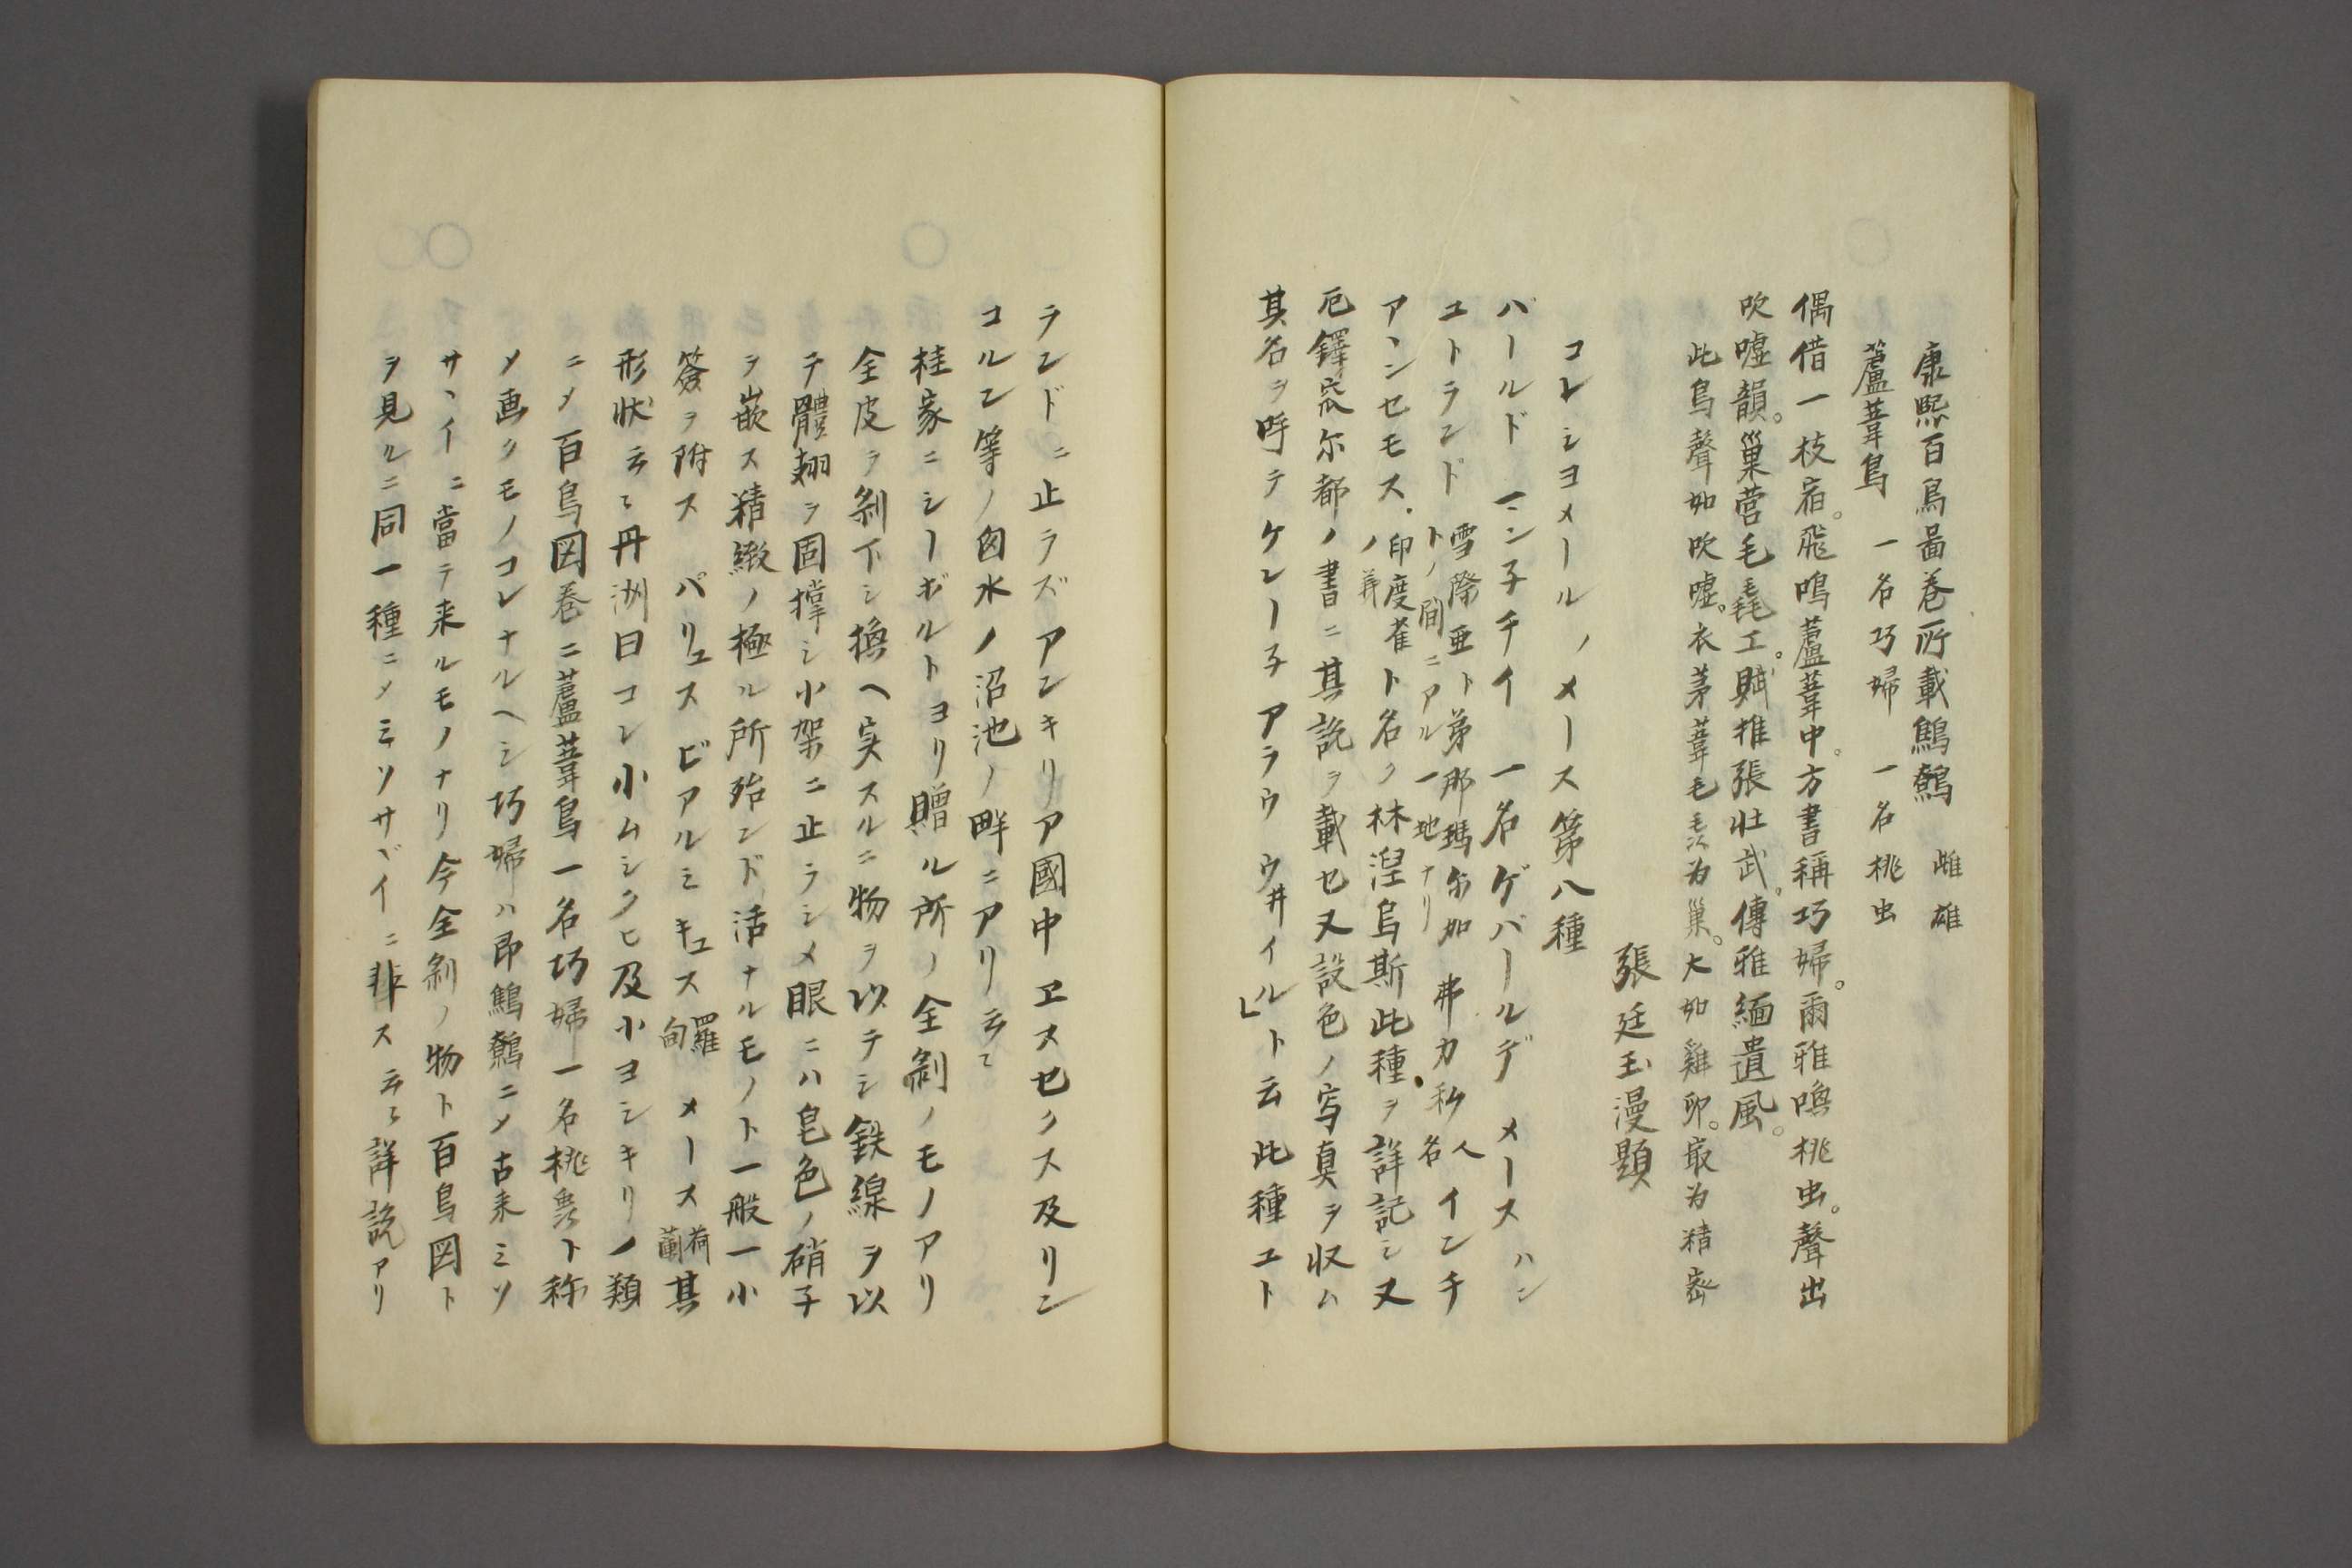 康熙百鳥啚巻所載鷦鷯 雌雄
蘆葦鳥 一名巧婦 一名桃虫
偶借一枝宿。飛鳴蘆葦中。方書稱巧婦。爾雅鳴桃虫。聲出
吹嘘韻。巣菅毛毳工。賦推張壮武。傳雅緬遺風。
此鳥聲如吹嘘。衣茅葦毛毳为巣。大如雞卵。最为精密
張廷玉漫題
コレシヨメールノメース第八種
バールド マンネチイ 一名ゲバールデ メース ハン
ユトランド 雪際亜ト弟那瑪尓如トノ間ニアル一地ナリ 弗カ私 人名 インチ
アヽンセモス 印度雀ト名ク 林涅烏斯此種ヲ詳記シ又
ノ義
厄鐸窊尓都ノ書ニ其説ヲ載セ又設色ノ写真ヲ収ム
其名ヲ呼テケレーネ アラウ ウ井イル」ト云此種ユト
ランドニ止ラズアンキリア國中ヱスセクス及リン
コルン等ノ囪水ノ沼池ノ畔ニアリ云〻
桂家ニシーボルトヨリ贈ル所ノ全剝ノモノアリ
全皮ヲ剝下シ換ヘ実スルニ物ヲ以テシ鉄線ヲ以
テ體翅ヲ固撑シ小架ニ止ラシメ眼ニハ皂色ノ硝子
ヲ嵌ス精緻ノ極ル所殆ンド活ナルモノト一般一小
簽ヲ附ス パリュス ビアルミキュス 羅甸 メース 荷蘭 其
形状云〻丹洲曰コレ小ムシクヒ及小ヨシキリノ類
ニメ百鳥図巻ニ蘆葦鳥一名巧婦一名桃虫ト称
メ画クモノコレナルヘシ巧婦ハ即鷦鷯ニメ古来ミソ
サヽイニ當テ来ルモノナリ今全剝ノ物ト百鳥図ト
ヲ見ルニ同一種ニメミソサヾイニ非ス云〻詳説アリ